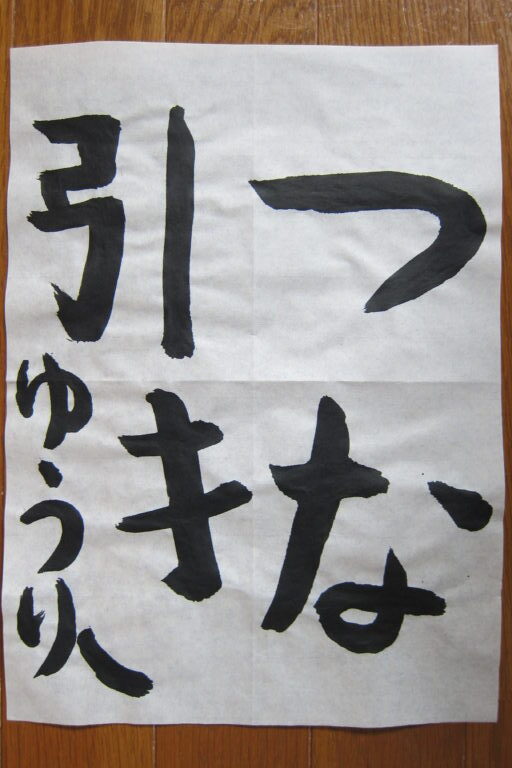 つな
引き
ゆうり